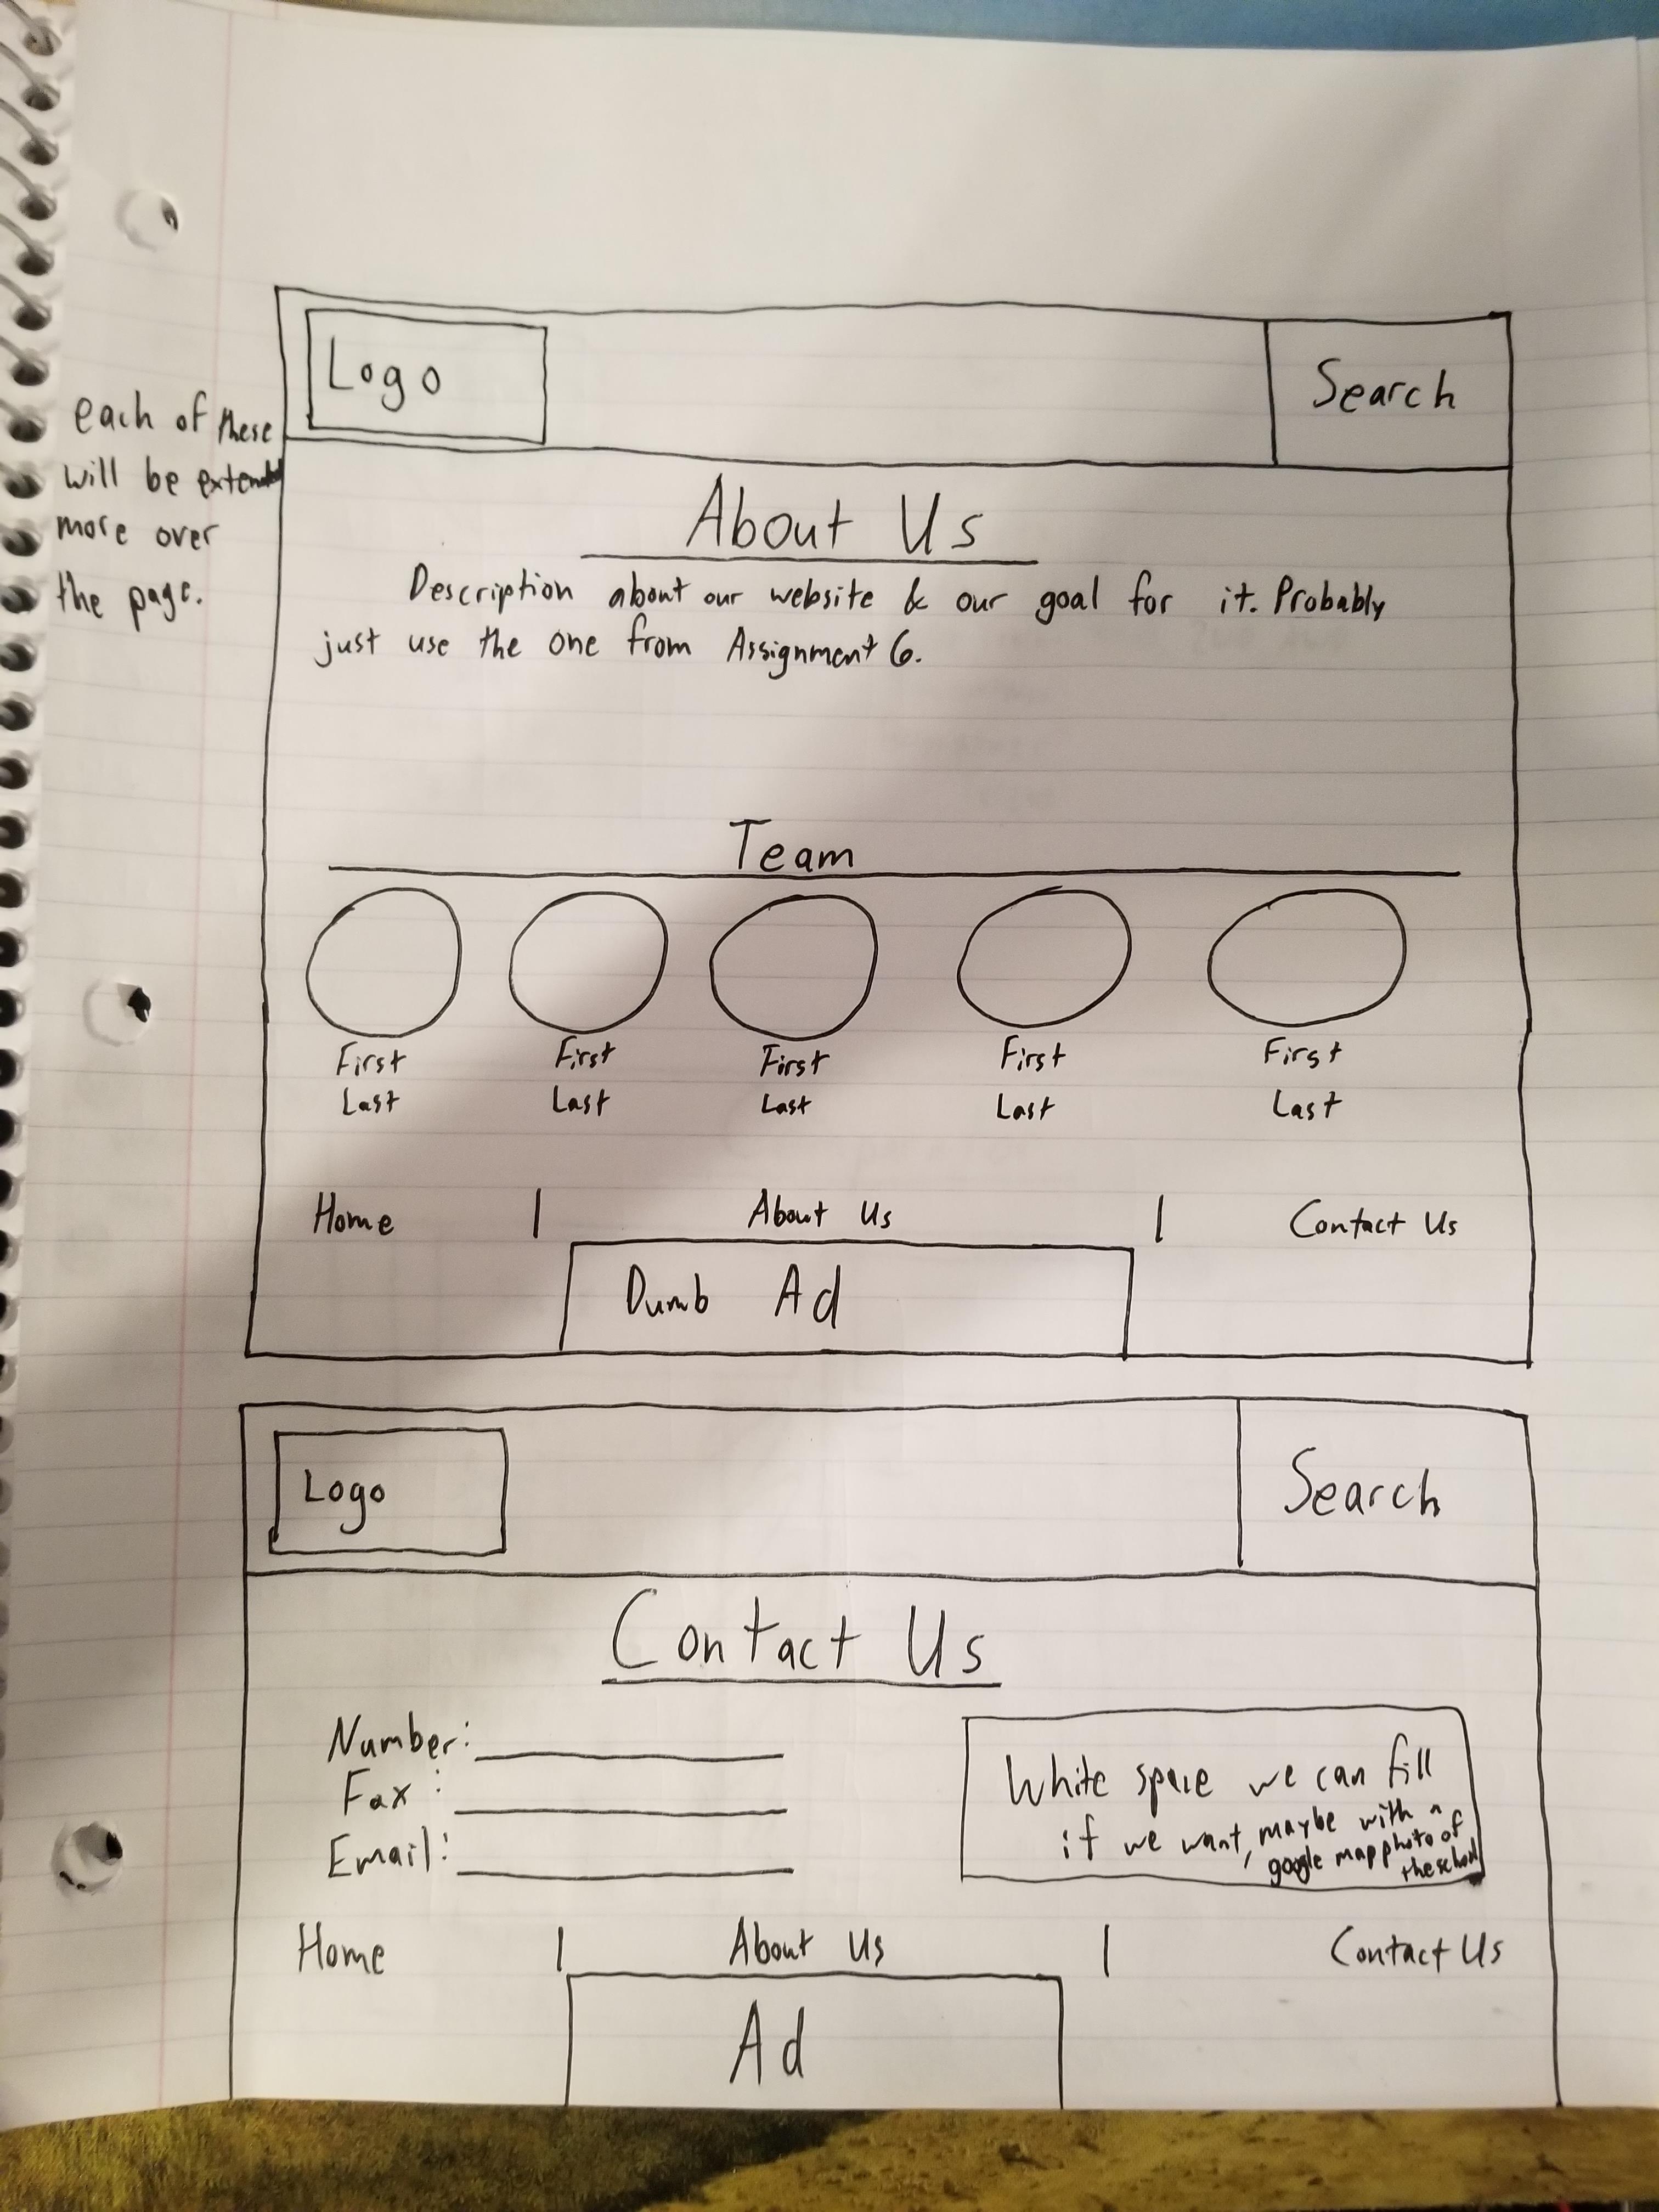 each of these
will be extended
more over
the page.
Logo
Search
About Us
Description about our website & our goal for it. Probably
just use the one from Assignment 6.
Team
First
Last
First
Last
First
Last
First
Last
First
Last
Home | About Us | Contact Us
Dumb Ad
Logo
Search
Contact Us
Number:
Fax:
Email:
White space we can fill
if we want, maybe with a
google map photo of
the school
Home | About Us | Contact Us
Ad